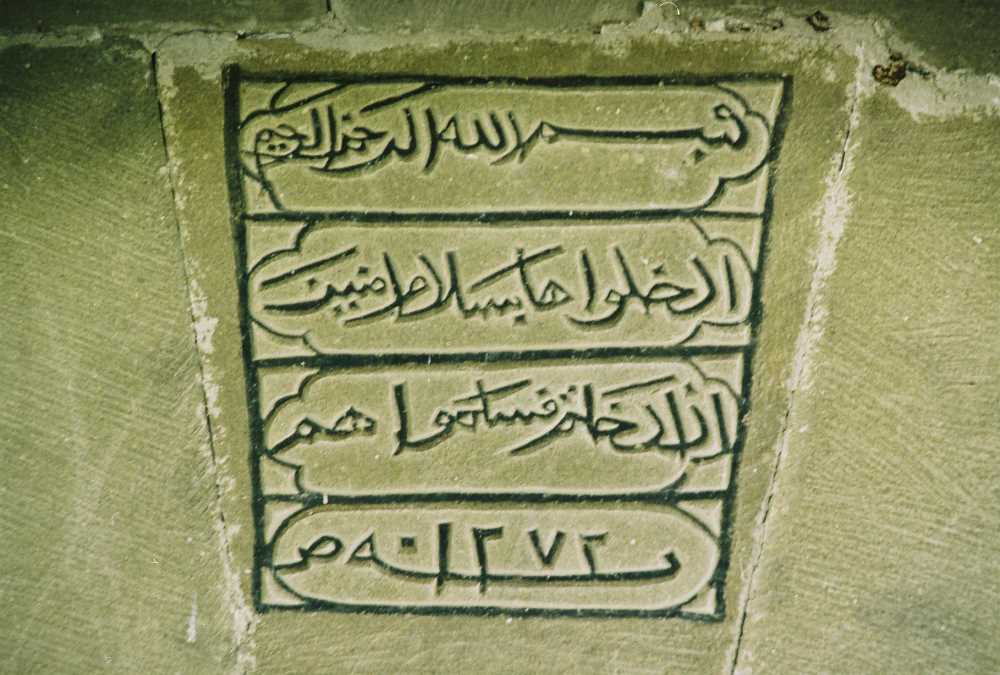 بسم الله الرحمن الرحيم
ادخلوها بسلام امنين
اذا دخلتم فسلموا
سنه ١٢٧٢